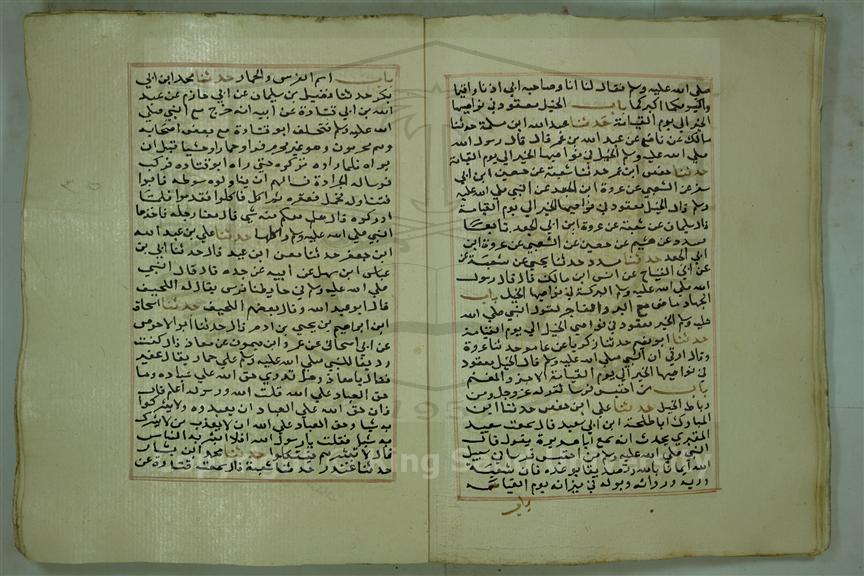 صلي الله عليه وسلم فقال لنا انا وصاحبه لي اذنا واقيما
وليؤمكما اكبركما باب الخيل معقود في نواصيها
الخير الي يوم القيامة حدثنا عبد الله ابن مسلمة حدثنا
مالك عن نافع عن عبد الله بن عمر قال قال رسول الله
صلي الله عليه وسلم الخيل في نواصيها الخير الي يوم القيامة
حدثنا حفص ابن عمر حدثنا شعبة عن حصين ابن ابي
سفر عن الشعبي عن عروة ابن الجعد عن النبي صلي الله عليه
وسلم قال الخيل معقود في نواصيها الخير الي يوم القيامة
قال سليمان عن شعبة عن عروة ابن ابي الجعد تابعه
مسدد عن هشيم عن حصين عن الشعبي عن عروة ابن
ابي الجعد حدثنا مسدد حدثنا يحيي عن شعبة عن
عن ابي التياح عن انس ابن مالك قال قال رسول
الله صلي الله عليه وسلم البركة في نواصي الخيل باب
الجهاد ماض مع البر والفاجر لقول النبي صلي الله
عليه وسلم الخيل معقود في نواصي الخيل الي يوم القيامة
حدثنا ابو نعيم حدثنا زكريا عن عامر حدثنا عروة
البارقي ان النبي صلي الله عليه وسلم قال الخيل معقود
في نواصيها الخير الي يوم القيامة الاجر والمغنم
باب من احتبس فرسا لقوله عز وجل ومن
رباط الخيل حدثنا علي ابن حفص حدثنا ابن
المبارك انا طلحة ابن ابي سعيد قال سمعت سعيد
المقبري يحدث انه سمع ابا هريرة يقول قال
النبي صلي الله عليه وسلم من احتبس فرسا في سبيل
الله ايمانا بالله وتصديقا بوعده فان شبعه
وريه وروثه وبوله في ميزانه يوم القيامة
باب
باب اسم الفرس والحمار حدثنا محمد ابن ابي
بكر حدثنا فضيل بن سليمان عن ابي حازم عن عبد
الله بن ابي قتادة عن ابيه انه خرج مع النبي صلي
الله عليه وسلم فتخلف ابو قتادة مع بعض اصحابه
وهم محرمون وهو غير محرم فراوا حمارا وحشيا قبل ان
يراه فلما راوه تركوه حتي راه ابو قتادة فركب
فرسا له الجرادة فسالهم ان يناولوه سوطه فابوا
فتناوله فحمل فعقره ثم اكل فاكلوا فقدموا فلما
ادركوه قال هل معكم منه شي قال معنا رجله فاخذها
النبي صلي الله عليه وسلم واكلها حدثنا علي بن عبد الله
ابن جعفر حدثنا معن ابن عيسي قال حدثنا ابي بن
عباس ابن سهل عن ابيه عن جده قال قال النبي
صلي الله عليه وسلم في حايطنا فرس يقال له اللحيف
قال ابو عبد الله وقال بعضهم اللخيف حدثنا اسحاق
ابن ابراهيم بن يحيي بن ادم قال حدثنا ابو الاحوص
عن ابي اسحاق عن عمرو ابن ميمون عن معاذ قال كنت
رديفا للنبي صلي الله عليه وسلم علي حمار يقال عفير
فقال يا معاذ وهل تدري حق الله علي عباده وما
حق العباد علي الله قلت الله ورسوله اعلم قال
فان حق الله علي العباد ان يعبدوه ولا يشركوا
به شيا وحق العباد علي الله ان لا يعذب من لا يشرك
به شيا فقلت يا رسول الله افلا ابشر به الناس
قال لا تبشرهم فيتكلوا حدثنا محمد ابن بشار
حدثنا غندر حدثنا شعبة قال سمعت قتادة عن